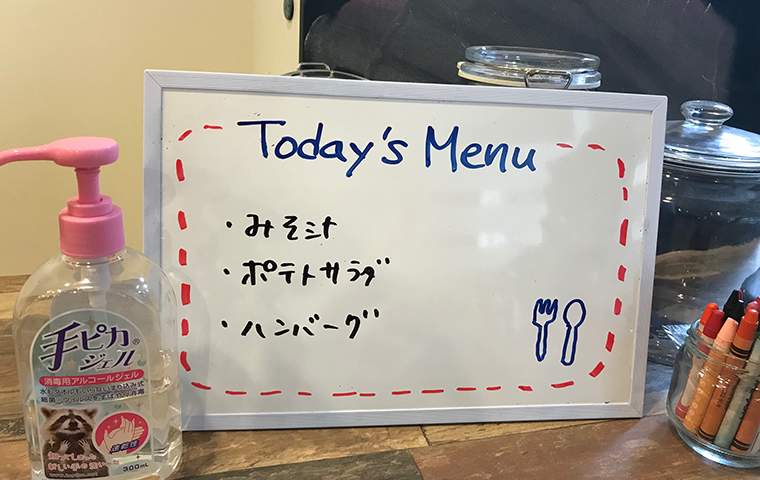 Today's Menu
・みそ汁
・ポテトサラダ
・ハンバーグ
手ピカ
ジェル
消毒用アルコールジェル
速乾性
300mL